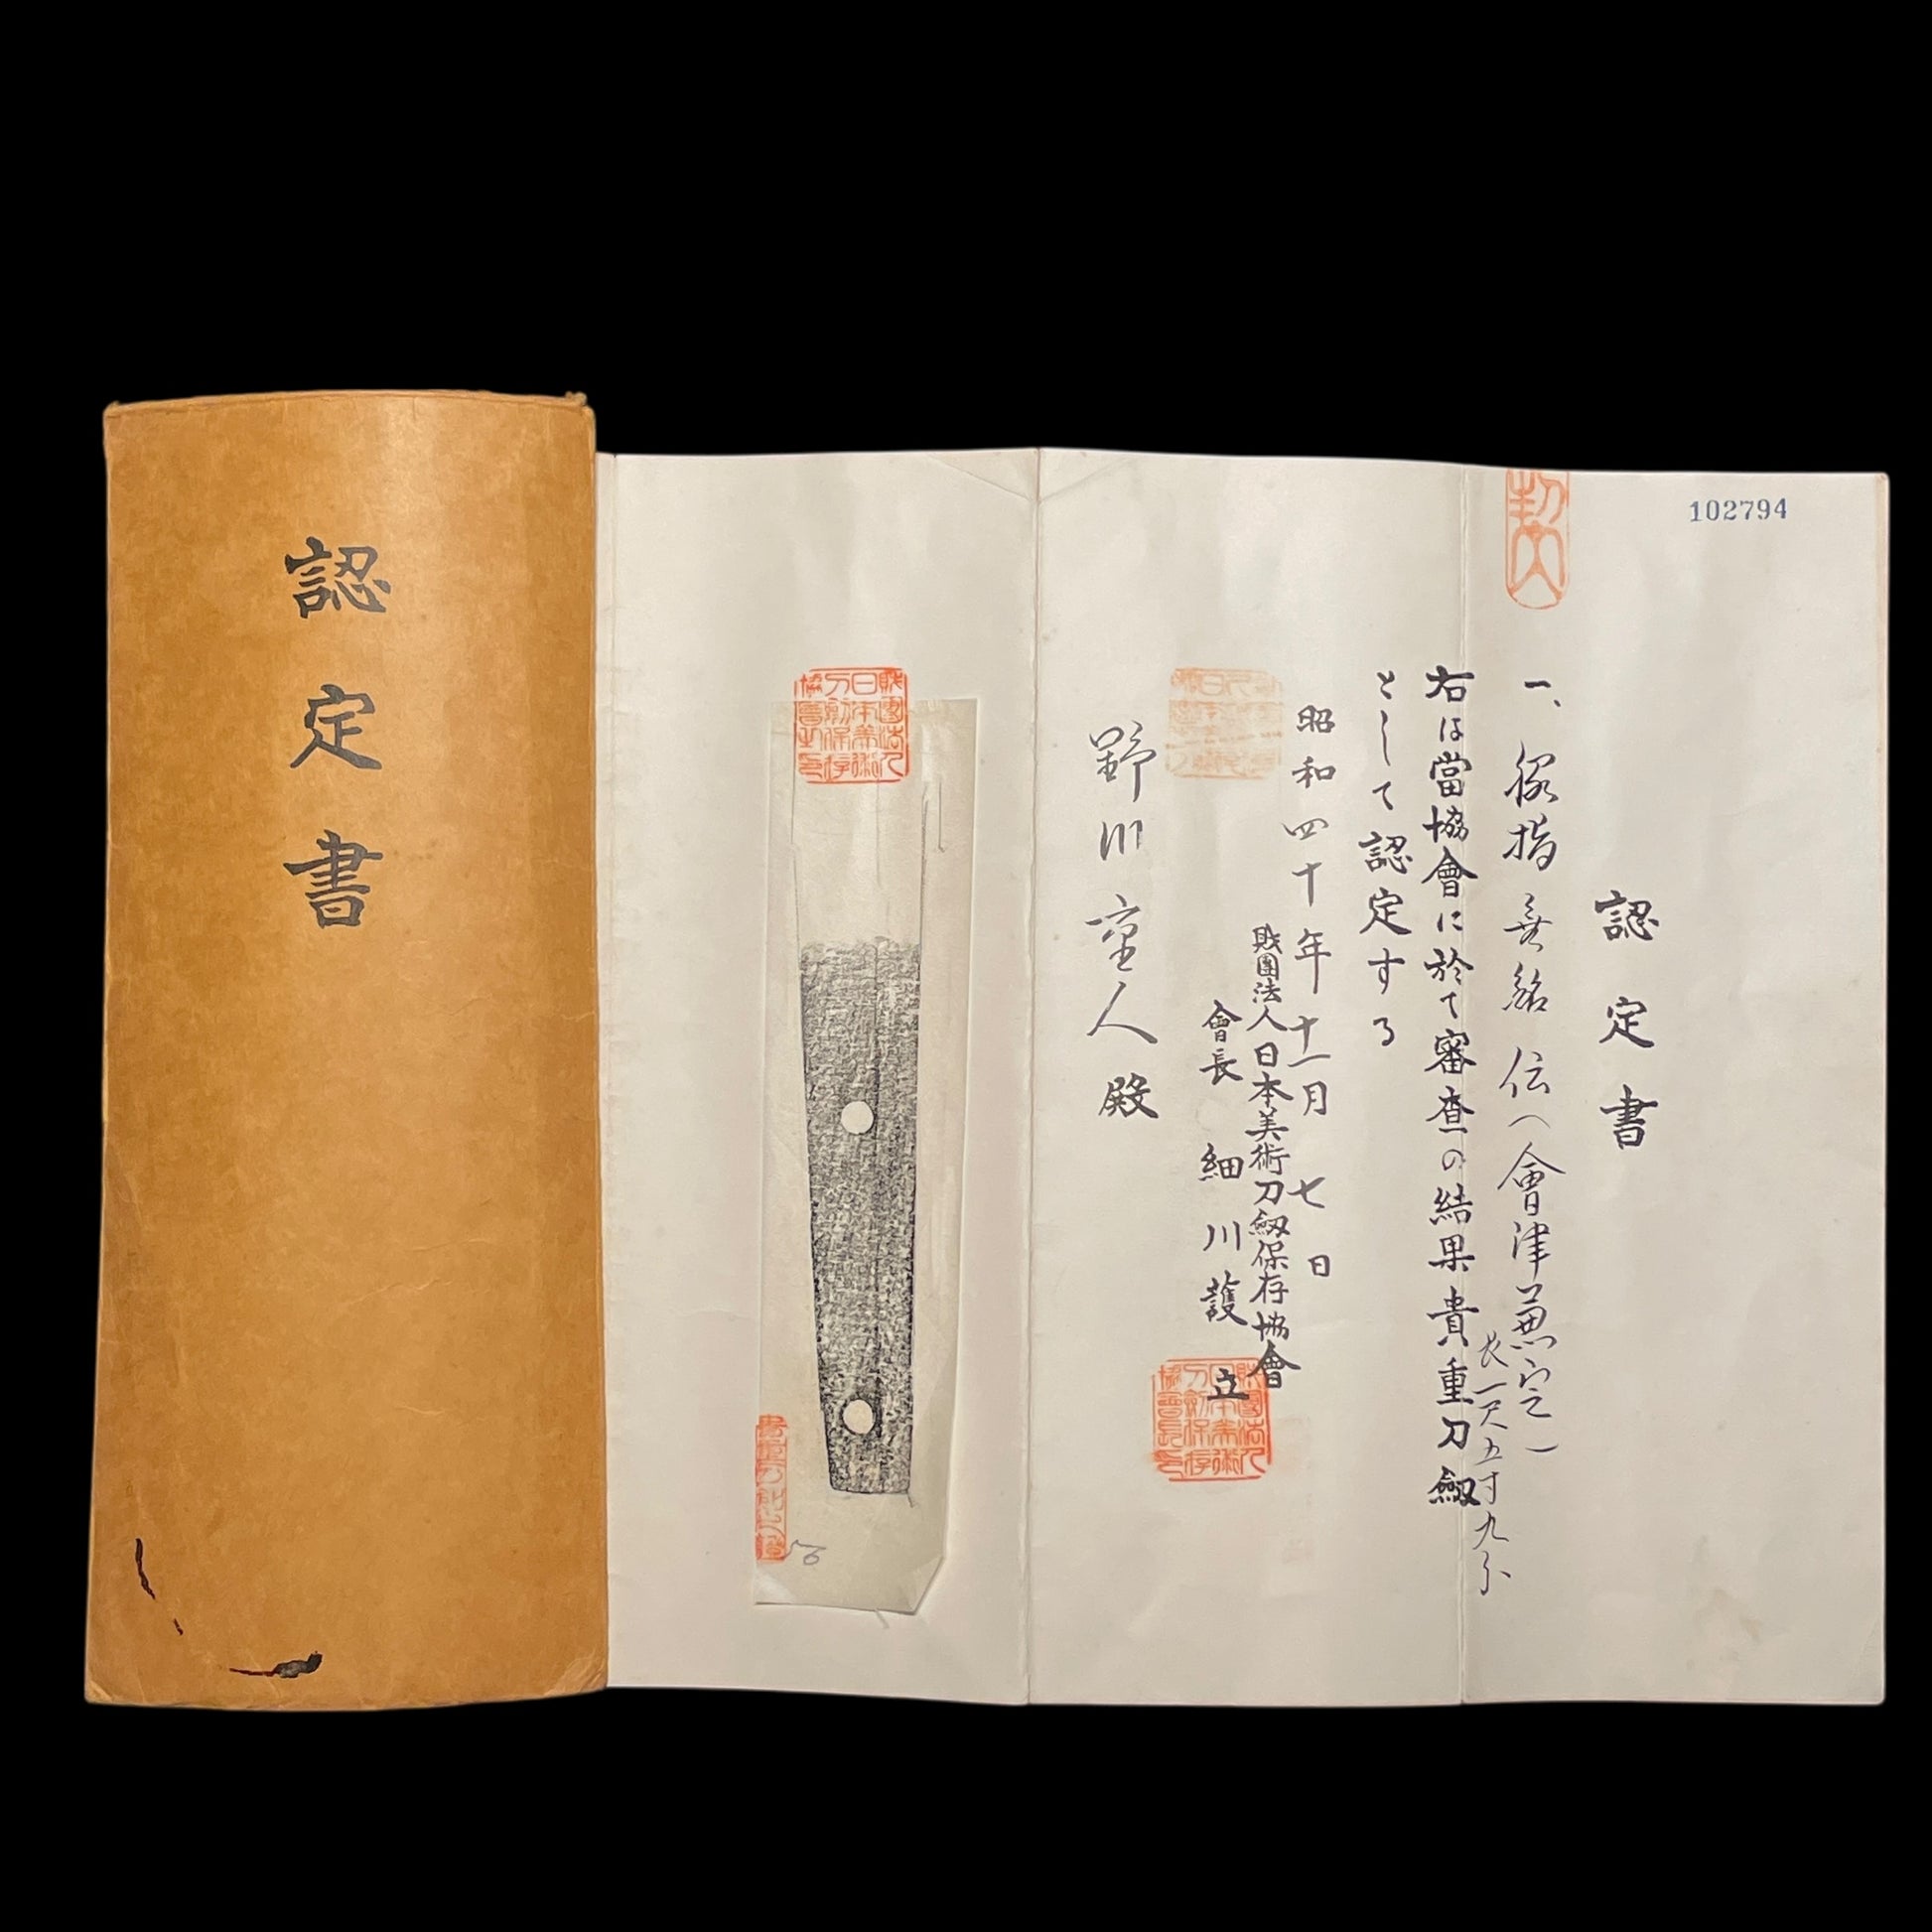 102794
認定書
一、脇指 無銘 伝(會津兼定)
長一尺五寸九分
右は當協會に於て審査の結果貴重刀劔
として認定する
昭和四十年十一月七日
財團法人日本美術刀劔保存協會
會長 細川護立
野川重人殿
認定書